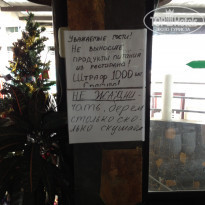 Уважаемые гости!
Не выносите
продукты питания
из ресторана!
Штраф 1000
Спасибо!
НЕ ЖАДНИ
чать, берем
столько ско
лько скушаем